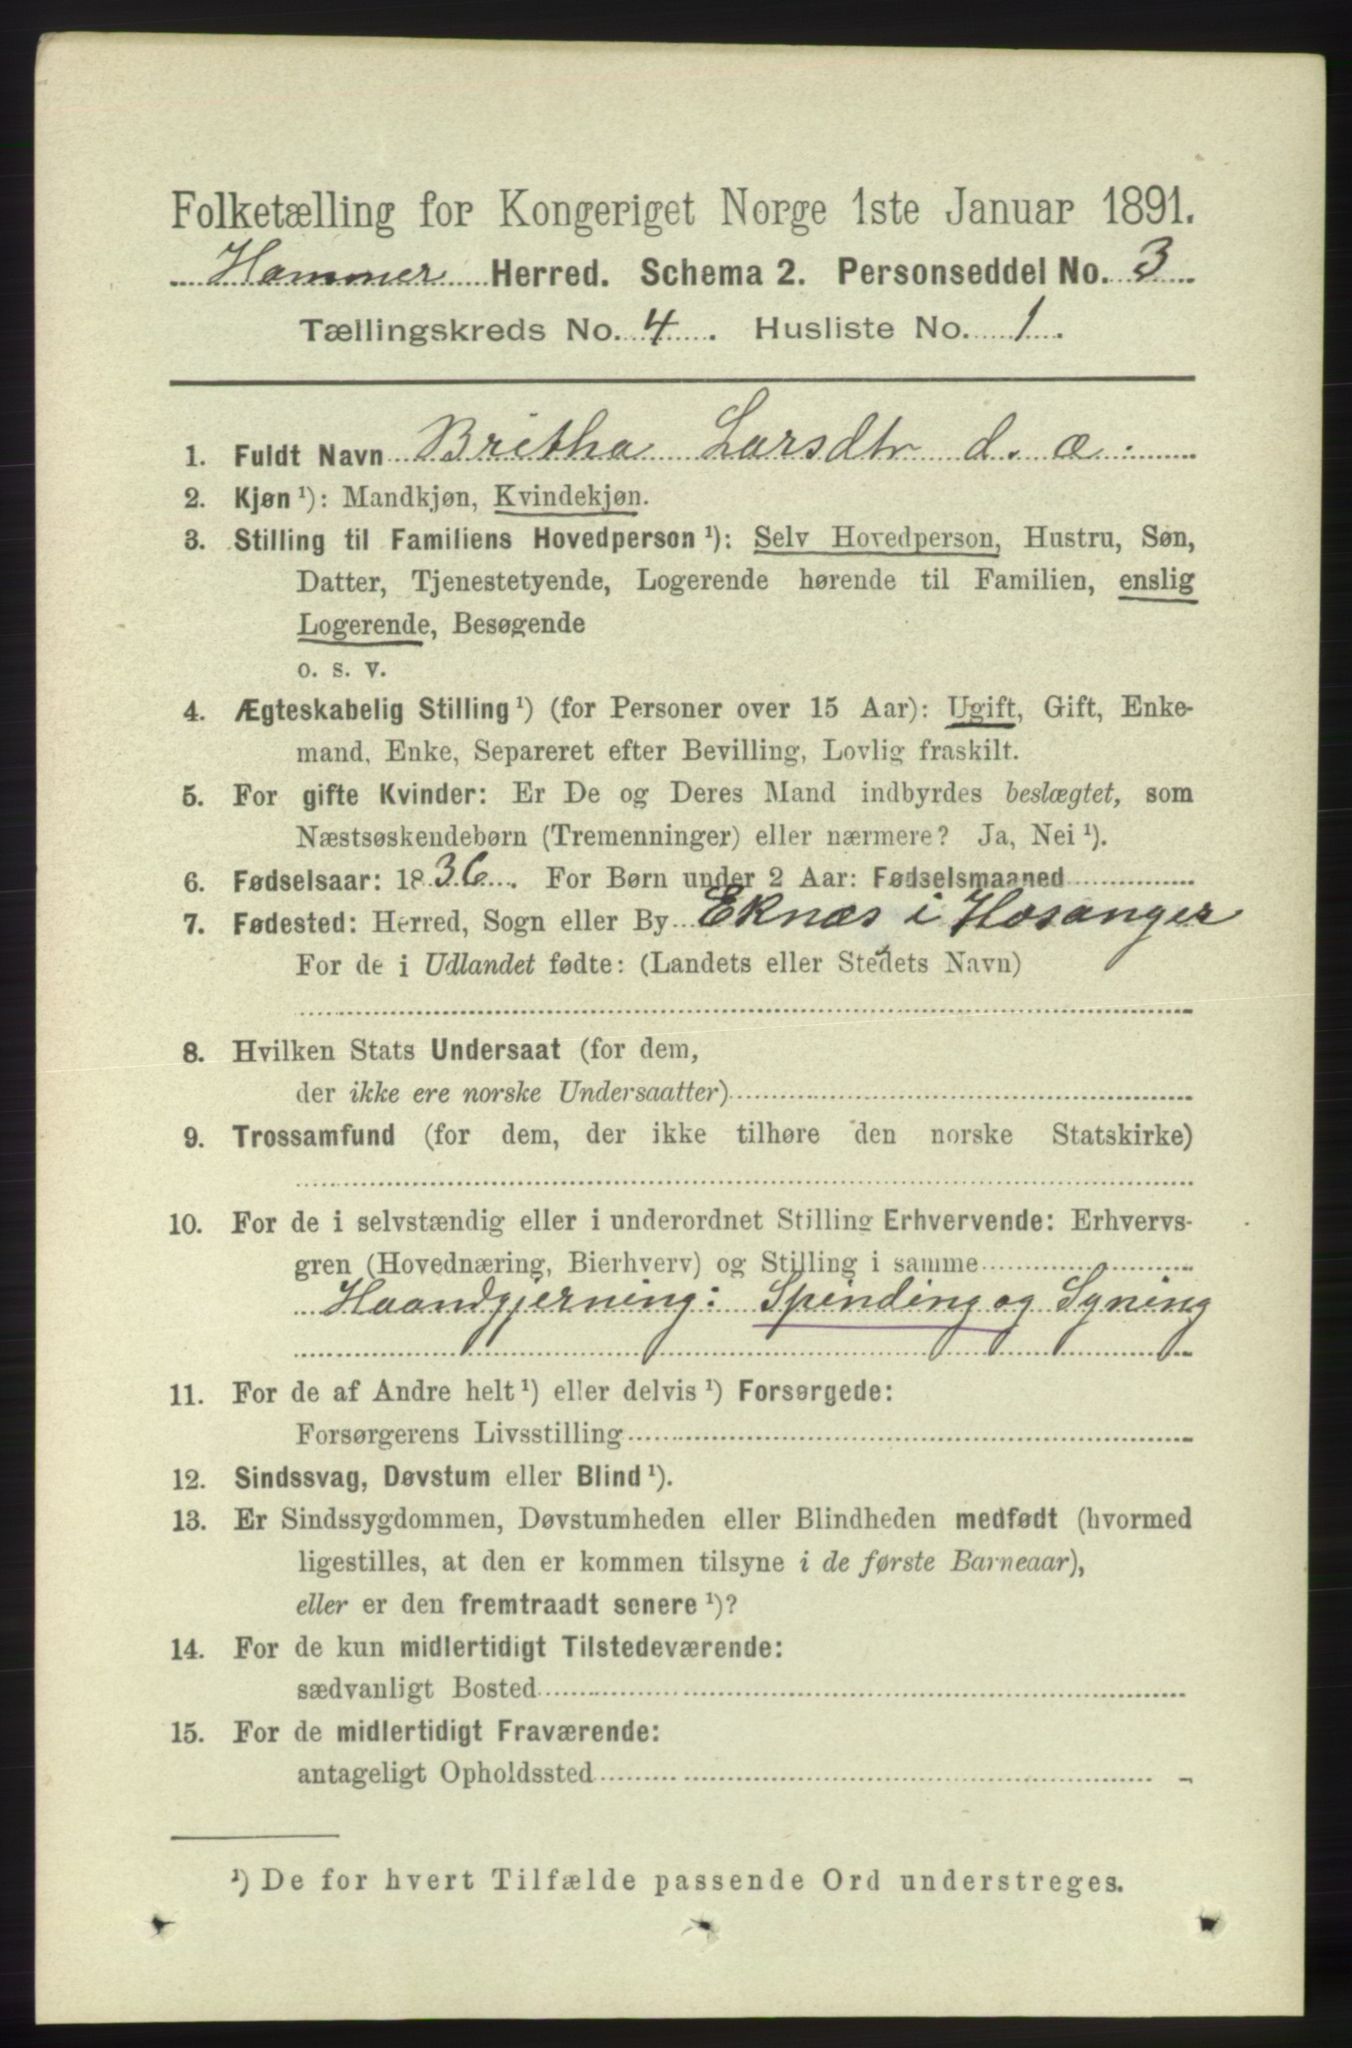 Folketælling for Kongeriget Norge 1ste Januar 1891.
Hammer Herred. Schema 2. Personseddel No. 3
Tællingskreds No. 4. Husliste No. 1.
1. Fuldt Navn Britha Larsdtr d. æ.
2. Kjøn ¹): Mandkjøn, Kvindekjøn.
3. Stilling til Familiens Hovedperson ¹): Selv Hovedperson, Hustru, Søn,
Datter, Tjenestetyende, Logerende hørende til Familien, enslig
Logerende, Besøgende
o. s. v.
4. Ægteskabelig Stilling ¹) (for Personer over 15 Aar): Ugift, Gift, Enke-
mand, Enke, Separeret efter Bevilling, Lovlig fraskilt.
5. For gifte Kvinder: Er De og Deres Mand indbyrdes beslægtet, som
Næstsøskendebørn (Tremenninger) eller nærmere? Ja, Nei ¹).
6. Fødselsaar: 1836. For Børn under 2 Aar: Fødselsmaaned
7. Fødested: Herred, Sogn eller By Eknæs i Hosanger
For de i Udlandet fødte: (Landets eller Stedets Navn)
8. Hvilken Stats Undersaat (for dem,
der ikke ere norske Undersaatter)
9. Trossamfund (for dem, der ikke tilhøre den norske Statskirke)
10. For de i selvstændig eller i underordnet Stilling Erhvervende: Erhvervs-
gren (Hovednæring, Bierhverv) og Stilling i samme
Haandgjerning: Spinding og Syning
11. For de af Andre helt ¹) eller delvis ¹) Forsørgede:
Forsørgerens Livsstilling
12. Sindssvag, Døvstum eller Blind ¹).
13. Er Sindssygdommen, Døvstumheden eller Blindheden medfødt (hvormed
ligestilles, at den er kommen tilsyne i de første Barneaar),
eller er den fremtraadt senere ¹)?
14. For de kun midlertidigt Tilstedeværende:
sædvanligt Bosted
15. For de midlertidigt Fraværende:
antageligt Opholdssted
¹) De for hvert Tilfælde passende Ord understreges.